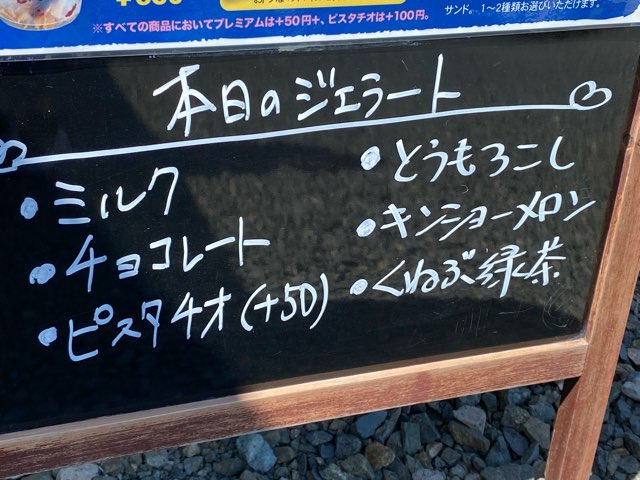 ※すべての商品においてプレミアムは+50円+、ピスタチオは+100円。
サンド。 1〜2種類お選びいただけます。
本日のジェラート
・ミルク
・チョコレート
・ピスタチオ(+50)
・とうもろこし
・キンショーメロン
・くねぶ緑茶